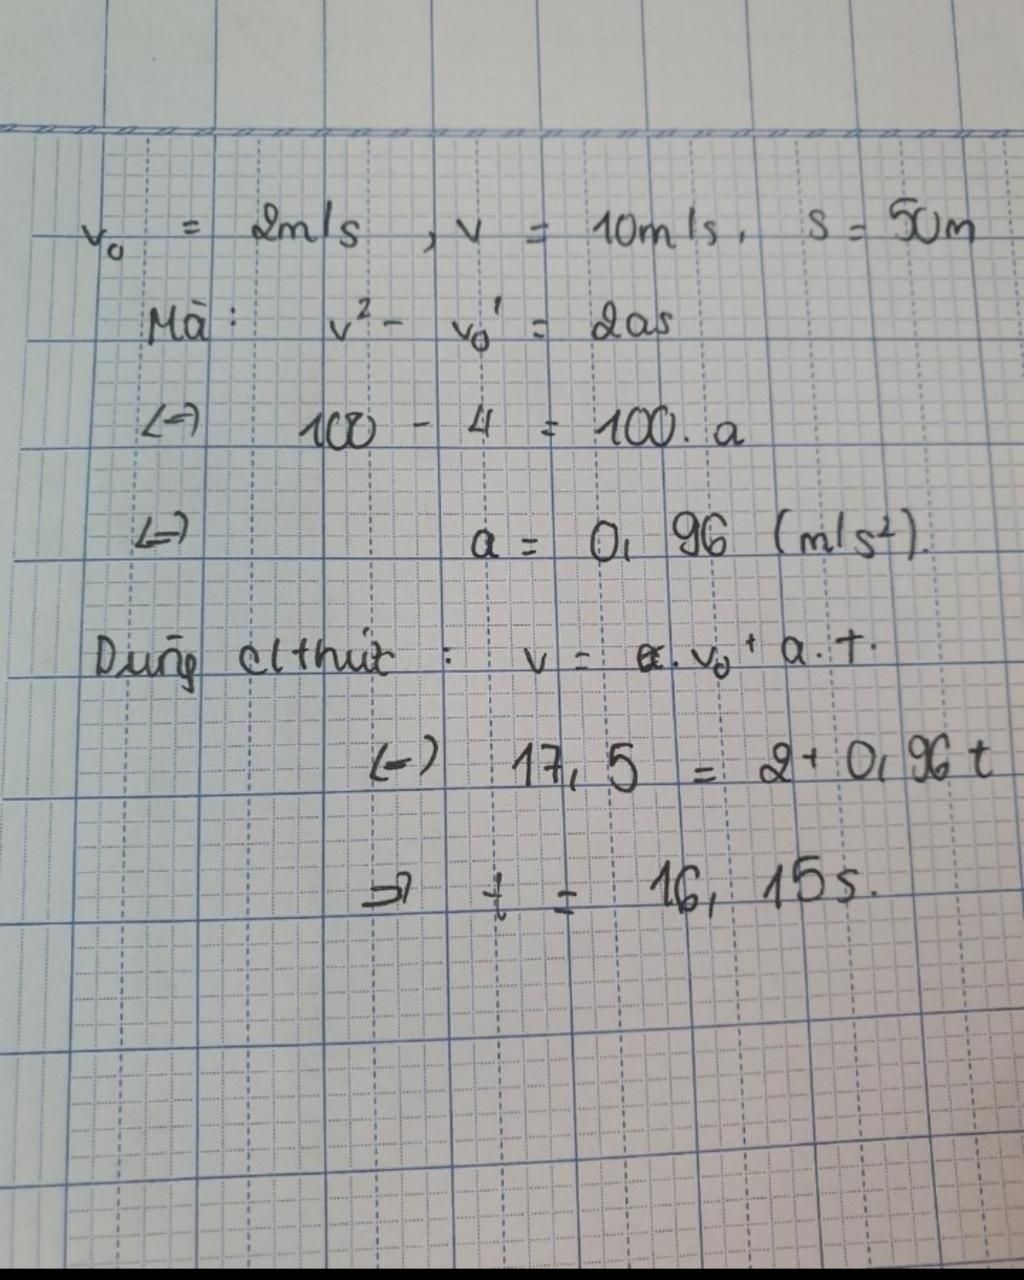 v₀ = 2m/s , v = 10m/s, s = 50m
Mà: v² - v₀' = 2as
(=) 100 - 4 = 100. a
(=) a = 0, 96 (m/s²).
Dùng : v = v₀ + a.t.
(-) 17, 5 = 2 + 0, 96 t
=> t = 16, 15s.